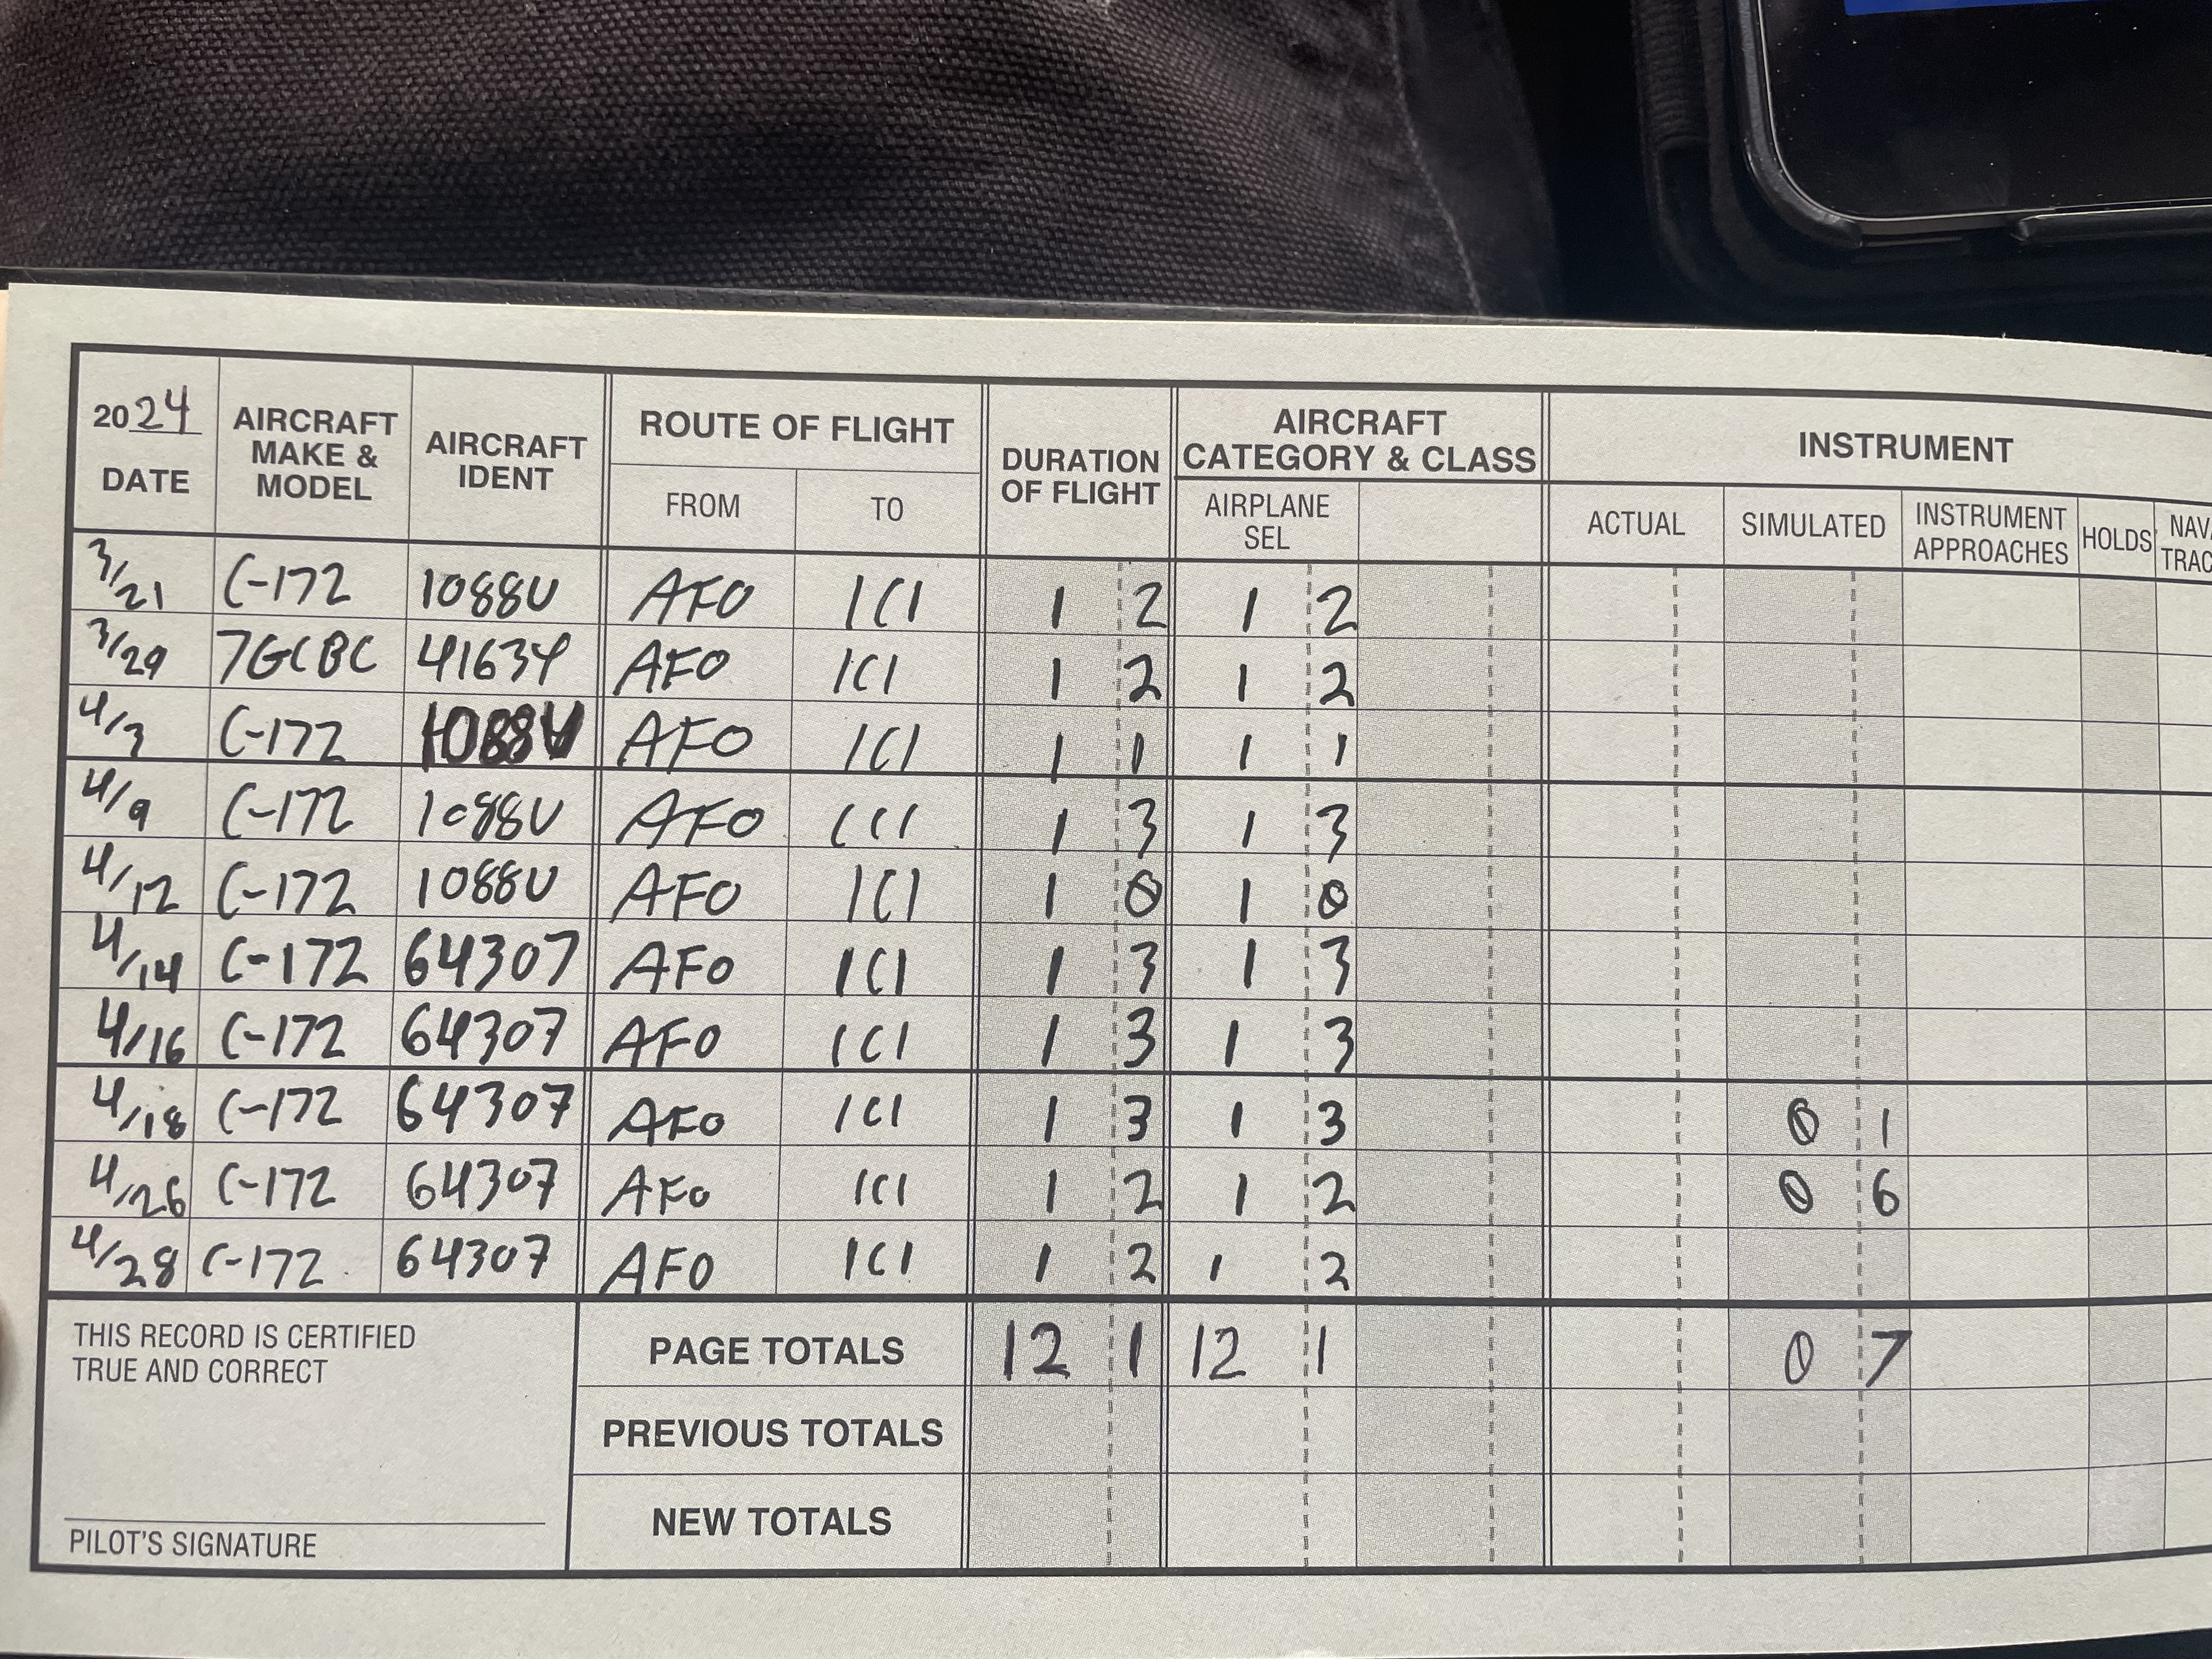 2024 DATE AIRCRAFT MAKE & MODEL AIRCRAFT IDENT ROUTE OF FLIGHT FROM TO DURATION OF FLIGHT AIRCRAFT CATEGORY & CLASS AIRPLANE SEL INSTRUMENT ACTUAL SIMULATED INSTRUMENT APPROACHES HOLDS
3/21 C-172 1088U AFO 1C1 1 2 1 2
3/29 7GCBC 41634 AFO 1C1 1 2 1 2
4/3 C-172 AFO 1C1 1 1 1 1
4/9 C-172 1088U AFO 1C1 1 3 1 3
4/12 C-172 1088U AFO 1C1 1 0 1 0
4/14 C-172 64307 AFO 1C1 1 3 1 3
4/16 C-172 64307 AFO 1C1 1 3 1 3
4/18 C-172 64307 AFO 1C1 1 3 1 3 0 1
4/26 C-172 64307 AFO 1C1 1 2 1 2 0 6
4/28 C-172 64307 AFO 1C1 1 2 1 2
THIS RECORD IS CERTIFIED
TRUE AND CORRECT
PAGE TOTALS 12 1 12 1 0 7
PREVIOUS TOTALS
NEW TOTALS
PILOT'S SIGNATURE